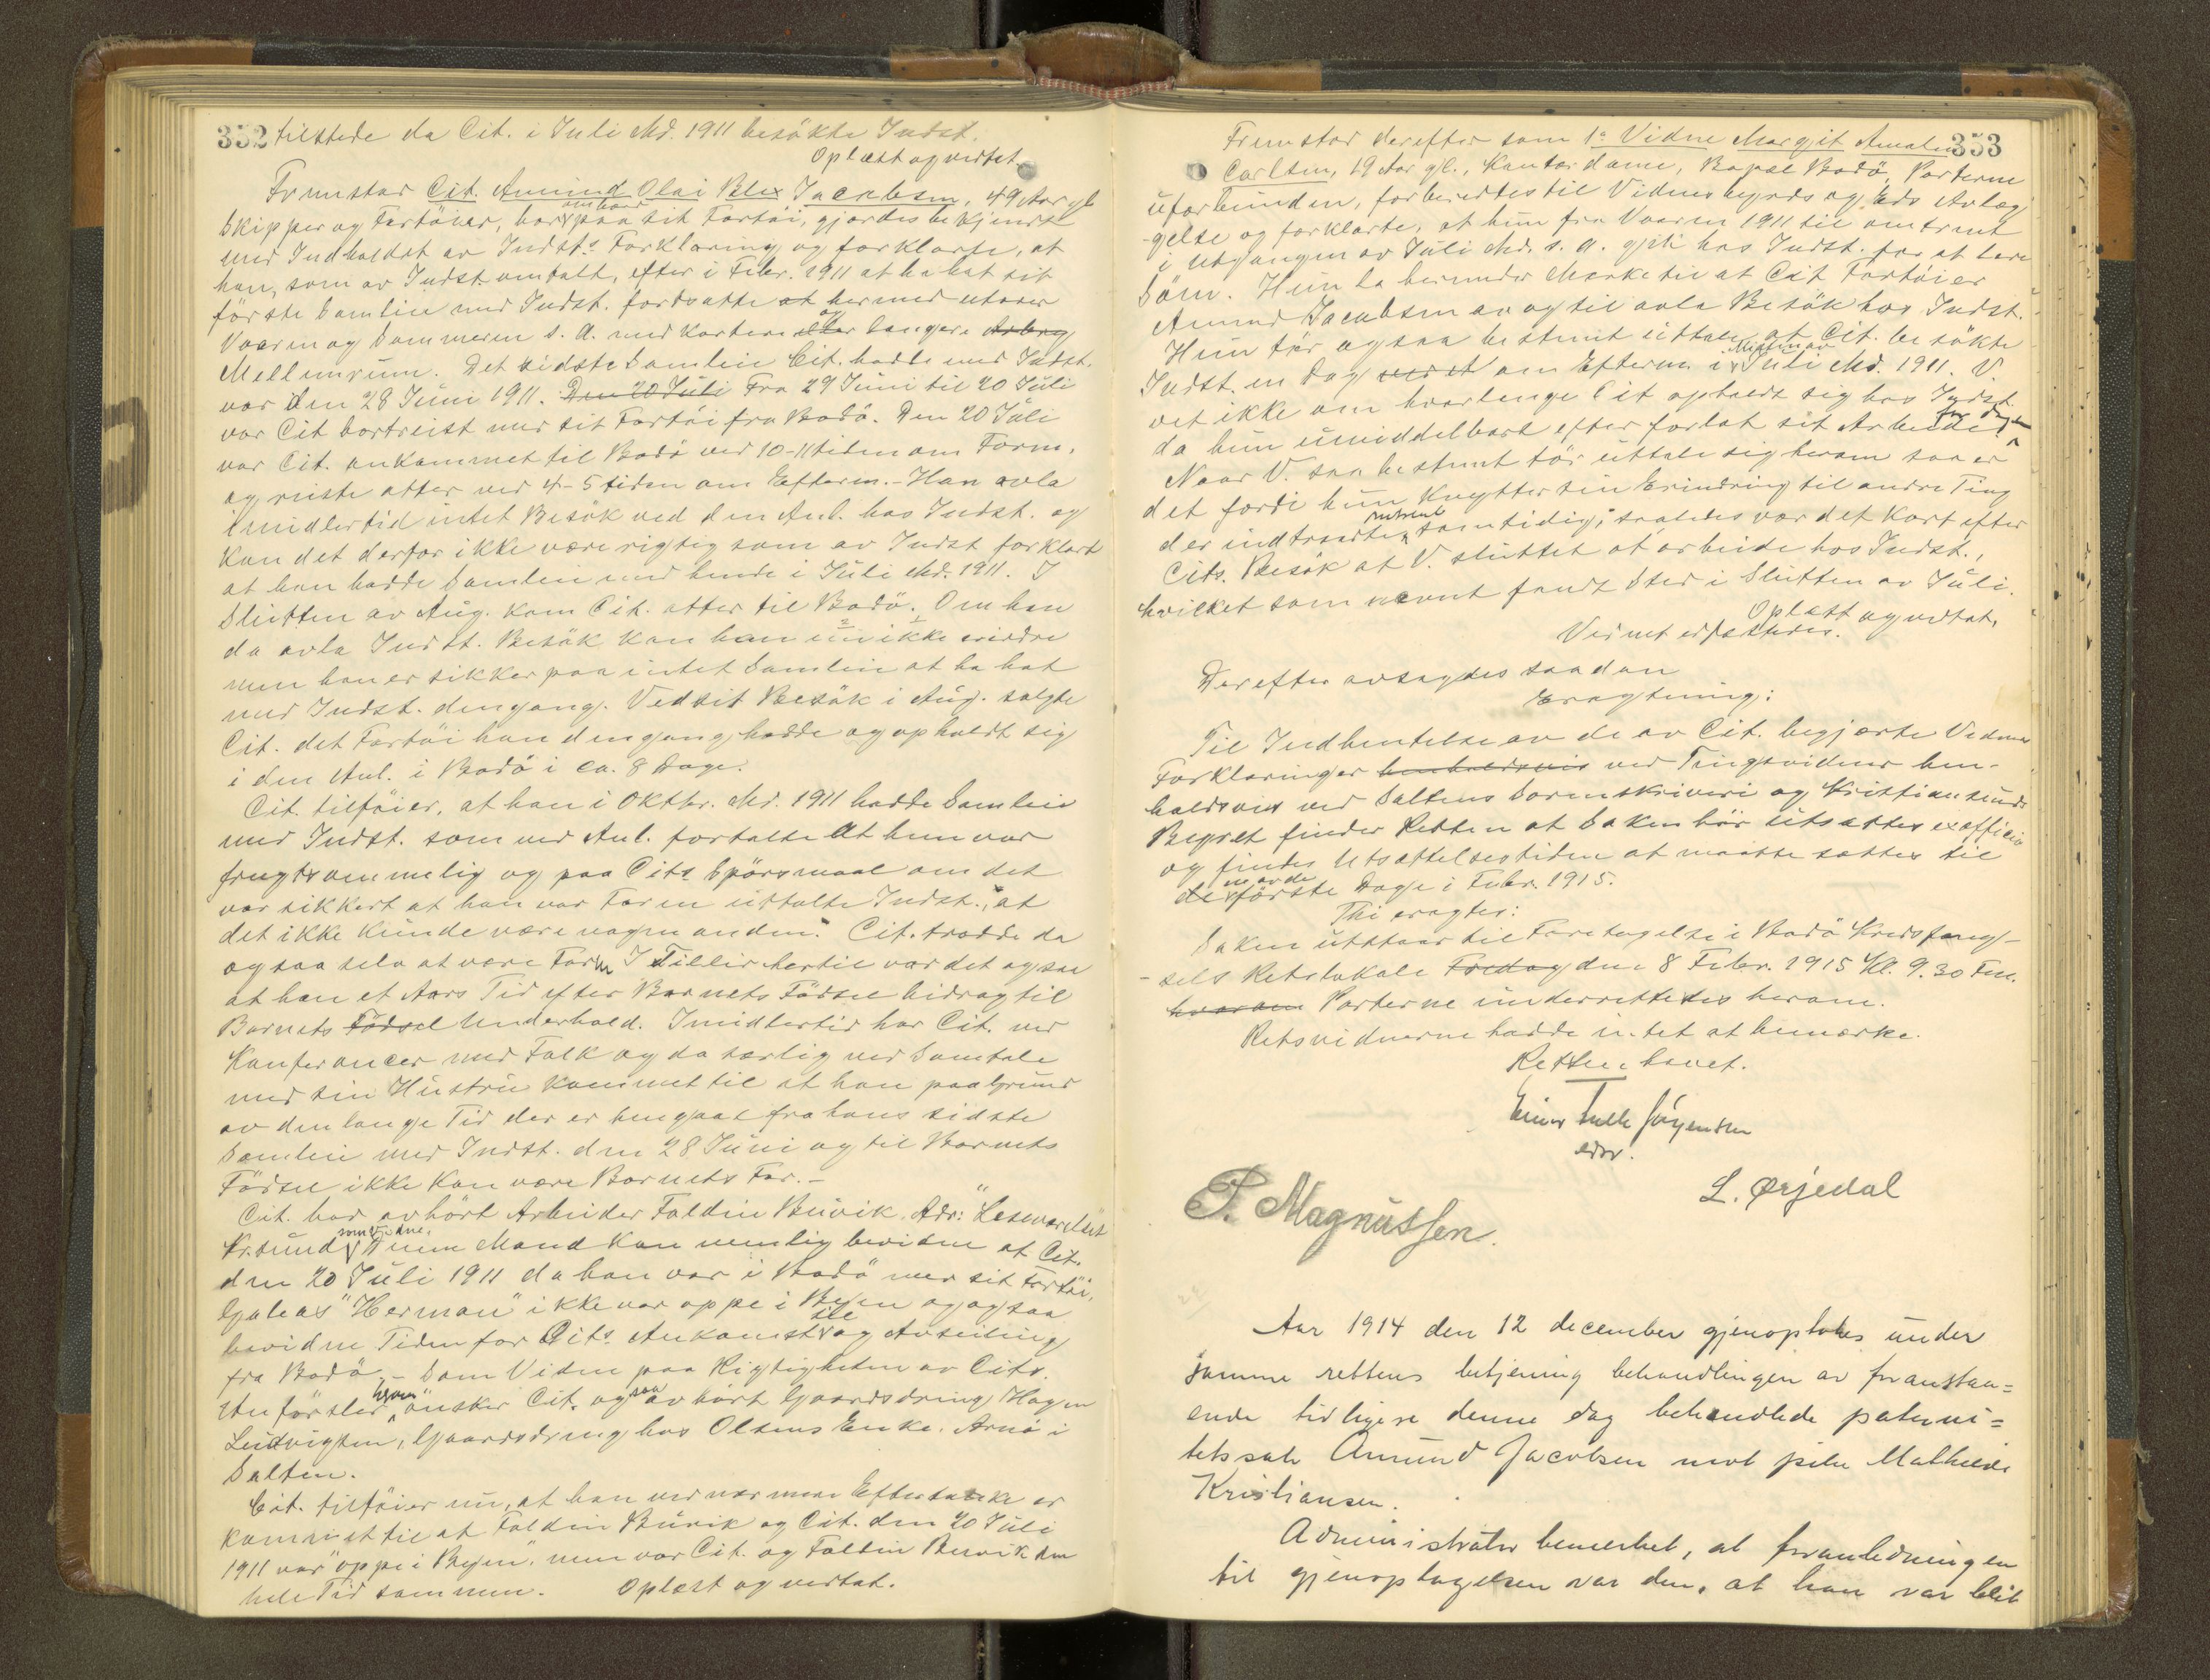 352 tilstede da Cit. i Juli Md. 1911 besøkte Indst.
Oplæst og vedtat.
Fremstod Cit. Amund Olai Blix Jacobsen, 49 Aar gl.
Skipper og Fartöier, bor ombord paa sit Fartöi, gjordes bekjendt
med Indholdet av Indsts Forklaring og forklarte, at
han, som av Indst. omtalt, efter i Febr. 1911 at ha hat sit
förste Samleie med Indst. fortsatte at hermed utover
Vaaren og Sommeren s. A. med kortere og længere
Mellemrum. Det sidste Samleie Cit. hadde med Indst.
var den 28 Juni 1911. Den 20 Juli Fra 29 Juni til 20 Juli
var Cit bortreist med sit Fartöi fra Bodö. Den 20 Juli
var Cit. ankommet til Bodö ved 10-11 tiden om Form.
og reiste atter ved 4-5 tiden om Efterm. - Han avla
imidlertid intet Besök ved den Anl. hos Indst. og
kan det derfor ikke være rigtig som av Indst forklart
at han hadde Samleie med hende i Juli Md. 1911. I
Slutten av Aug. kom Cit. atter til Bodö. Om han
da avla Indst. Besök kan han nu ikke erindre
men han er sikker paa intet Samleie at ha hat
med Indst. dengang. Ved sit Besök i Aug. solgte
Cit. det Fartöi han dengang hadde og opholdt sig
i den Anl. i Bodö i ca. 8 Dage.
Cit. tilföier, at han i Oktbr. Md. 1911 hadde Samleie
med Indst. som ved Anl. fortalte at hun var
frugtsommelig og paa Cits Spörsmaal om det
var sikkert at han var Faren uttalte Indst., at
det ikke kunde være nogen anden. Cit. trodde da
ogsaa selv at være Faren I Tillid hertil var det ogsaa
at han et Aars Tid efter Barnets Födsel bidrog til
Barnets Födsel Underhold. Imidlertid har Cit. ved
Konferancer med Folk og da særlig ved Samtale
med sin Hustru kommet til at han paa Grund
av den lange Tid der er hengaat fra hans sidste
Samleie med Indst. den 28 Juni og til Barnets
Födsel ikke kan være Barnets Far. -
Cit. har avhört Arbeider Faldin Buvik. Adr: "Læseværelset
Kr.sund som Vidne. Denne Mand kan nemlig bevidne at Cit.
den 20 Juli 1911 da han var i Bodö med sit Fartöi,
Galeas "Herman" ikke var oppe i Byen og ogsaa
bevidne Tiden for Cits. Ankomst til og Avseiling
fra Bodö. - Som Vidne paa Rigtigheten av Cits.
Anförsler herom önsker Cit. ogsaa avhört Gaardsdreng Hagen
Ludvigsen, Gaardsdreng hos Olsens Enke. Arnö i
Salten.
Cit. tilföier nu, at han ved nærmere Eftertanke er
kommet til at Faldin Buvik og Cit. den 20 Juli
1911 var "oppe i Byen", men var Cit. og Faldin Buvik den
hele Tid sammen. Oplæst og vedtat.
353
Fremstod derefter som 1e Vidne Margit Amalie
Carlsen, 19 Aar gl., Kontordame, Bopæl Bodö, Parterne
uforbunden, forberedtes til Vidnesbyrds og Eds Avlæg-
gelse og forklarte, at hun fra Vaaren 1911 til omtrent
i Utgangen av Juli Md. s. A. gik hos Indst. for at lære
Söm. Hun la herunder Mærke til at Cit Fartöier
Amund Jacobsen av og til avla Besök hos Indst.
Hun tör ogsaa bestemt uttale at Cit. besökte
Indst. en Dag om Efterm. i Midten av Juli Md. 1911. V.
vet ikke om hvorlenge Cit opholdt sig hos Indst.
da hun umiddelbart efter forlot sit Arbeide for Dagen
Naar V. saa bestemt tör uttale sig herom saa er
det fordi hun knytter sin Erindring til andre Ting
der indtraadte samtidig; saaledes var det kort efter
Cits. Besök at V. sluttet at arbeide hos Indst.,
hvilket som nævnt fandt Sted i Slutten av Juli.
Oplæst og vedtat.
Vidnet edfæstedes.
Derefter avsagdes saadan
Eragtning:
Til Indhentelse av de av Cit. begjærte Vidne
Forklaringer henholdsvis ved Tingsvidner hen-
holdsvis ved Saltens Sorenskriveri og Kristiansunds
Byret finder Retten at Saken bör utsættes ex officio
og findes Utsættelsestiden at maatte sættes til
de förste Dage i Febr. 1915.
Thi eragtes:
Saken utstaar til Foretagelse i Bodö Kredsfæng-
sels Retslokale Fredag den 8 Febr. 1915 Kl. 9.30 Fm.
hvorom Parterne underrettedes herom.
Retsvidnerne hadde intet at bemærke.
Retten hævet.
Einar Jörgensen
edsv.
L. Ørjedal
P. Magnussen.
Aar 1914 den 12 december gjenoptokes under
samme rettens betjening behandlingen av foranstaa=
ende tidligere denne dag behandlede paterni=
tetssak Amund Jacobsen mot pike Mathilde
Kristiansen.
Administrator bemerket, at foranledningen
til gjenoptagelsen var den, at han var blit